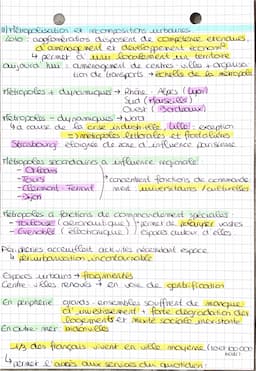 II) Métropolisation et recompositions urbaines
2010 : agglomérations disposent de compétences étendues,
d'aménagement et développement économ
↳ permet à un fonctionnement du territoire
aujourd'hui : aménagement de centres-villes + organisa
tion de transports → échelle de la métropole
Métropoles + dynamiques → Rhône-Alpes (Lyon)
Sud (Marseille)
Ouest (Bordeaux)
Métropoles - dynamiques → Nord
↳ à cause de la crise industrielle, Lille : exception
= métropoles littorales et frontalières
Strasbourg éloignée de zone d'influence parisienne
Métropoles secondaires à influence régionale
- Orléans
- Tours
- Clermont-Ferrand
- Dijon
concentrent fonctions de commande
ment universitaires/culturelles
Métropoles à fonctions de commandement spéciales :
- Toulouse (aéronautique)
- Grenoble (électronique)
permet de polariser vastes
espaces autour d'elles
Périphéries accueillent activités nécessitant espace
↳ périurbanisation incontournable
Espaces urbains → fragmentés
Centre villes rénovés → en voie de gentrification
En périphérie : grands-ensembles souffrent de manque
d'investissement + forte dégradation des
logements et mixité sociale inexistante
En outre-mer : bidonvilles
1/3 des français vivent en ville moyenne (20 à 100 000
habit)
↳ permet l'accès aux services du quotidien